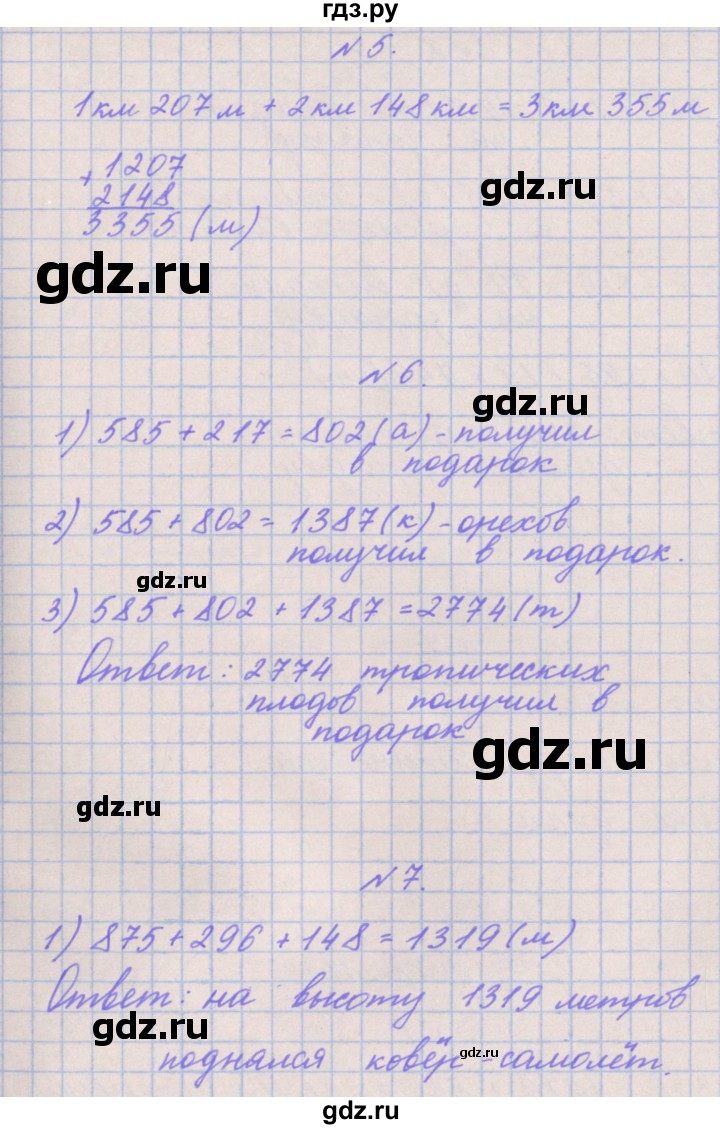 гдз.ру
№ 5.
1 км 207 м + 2 км 148 км = 3 км 355 м
+ 1207
2148
3355 (м)
gdz.ru
gdz.ru
№ 6.
gdz.ru
1) 585 + 217 = 802 (а) - получил
в подарок
2) 585 + 802 = 1387 (к) - орехов
получил в подарок.
gdz.ru
3) 585 + 802 + 1387 = 2774 (т)
Ответ: 2774 тропических
плодов получил в
подарок
gdz.ru
gdz.ru
№ 7.
1) 875 + 296 + 148 = 1319 (м)
Ответ: на высоту 1319 метров
gdz.ru
поднялся ковёр-самолёт.
gdz.ru
gdz.ru